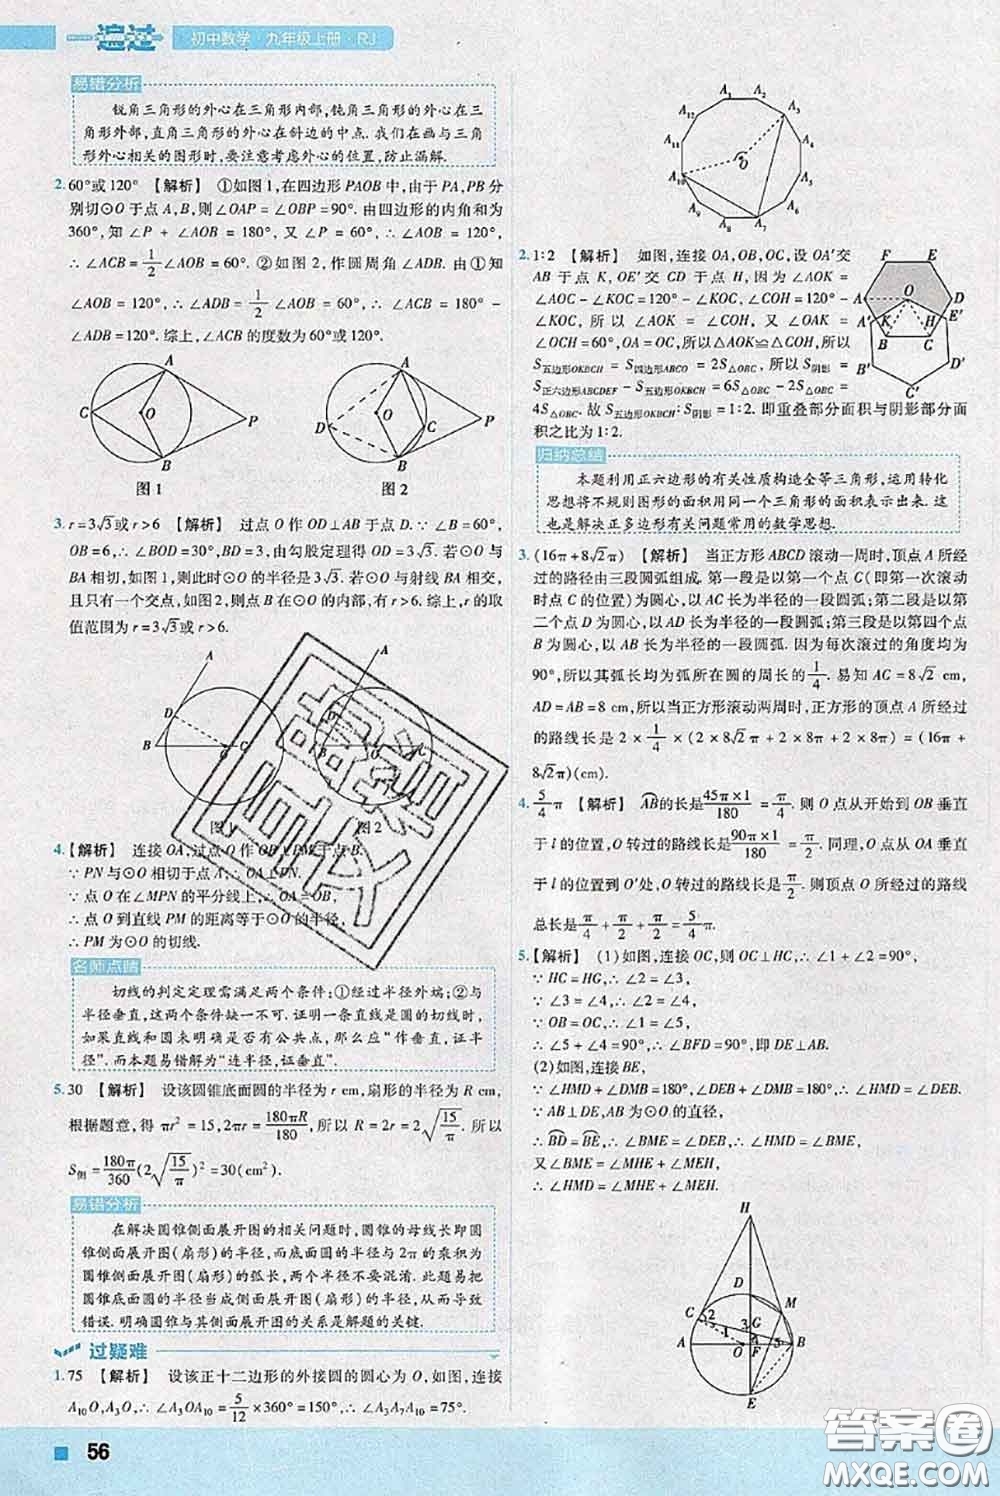 一遍过 初中数学·九年级上册·RJ
易错分析
锐角三角形的外心在三角形内部,钝角三角形的外心在三
角形外部,直角三角形的外心在斜边的中点. 我们在画与三角
形外心相关的图形时,要注意考虑外心的位置,防止漏解.
2. 60°或 120° 【解析】 ①如图 1,在四边形 PAOB 中,由于 PA,PB 分
别切⊙O 于点 A,B,则∠OAP = ∠OBP = 90°. 由四边形的内角和为
360°,知 ∠P + ∠AOB = 180°, 又 ∠P = 60°, ∴ ∠AOB = 120°,
∴ ∠ACB = 1/2 ∠AOB = 60°. ②如图 2,作圆周角∠ADB. 由①知
∠AOB = 120°, ∴ ∠ADB = 1/2 ∠AOB = 60°, ∴ ∠ACB = 180° -
∠ADB = 120°. 综上,∠ACB 的度数为 60°或 120°.
A C O P B
A O C D P B
图 1 图 2
3. r = 3√3 或 r > 6 【解析】 过点 O 作 OD⊥AB 于点 D. ∵ ∠B = 60°,
OB = 6,∴ ∠BOD = 30°,BD = 3,由勾股定理得 OD = 3√3. 若⊙O 与
BA 相切,如图 1,则此时⊙O 的半径是 3√3. 若⊙O 与射线 BA 相交,
且只有一个交点,如图 2,则点 B 在⊙O 的内部,有 r > 6. 综上,r 的取
值范围为 r = 3√3 或 r > 6.
A D B O C
A B
图 图 2
4. 【解析】 连接 OA,过点 O 作 OB⊥PM 于点 B.
∵ PN 与⊙O 相切于点 A,∴ OA⊥PN.
∵ 点 O 在∠MPN 的平分线上,∴ OA = OB,
∴ 点 O 到直线 PM 的距离等于⊙O 的半径,
∴ PM 为⊙O 的切线.
名师点睛
切线的判定定理需满足两个条件:①经过半径外端;②与
半径垂直,这两个条件缺一不可. 证明一条直线是圆的切线时,
如果直线和圆未明确是否有公共点,那么应“作垂直,证半
径”. 而本题易错解为“连半径,证垂直”.
5. 30 【解析】 设该圆锥底面圆的半径为 r cm,扇形的半径为 R cm,
根据题意,得 πr² = 15,2πr = 180πR/180,所以 R = 2r = 2√(15/π). 所以
S侧 = 180π/360 (2√(15/π))² = 30(cm²).
易错分析
在解决圆锥侧面展开图的相关问题时,圆锥的母线长即圆
锥侧面展开图(扇形)的半径,而底面圆的半径与 2π 的乘积为
圆锥侧面展开图(扇形)的弧长,两个半径不要混淆. 此题易把
圆锥底面圆的半径当成侧面展开图(扇形)的半径,从而导致
错误. 明确圆锥与其侧面展开图的关系是解题的关键.
过疑难
1. 75 【解析】 设该正十二边形的外接圆的圆心为 O,如图,连接
A₁₀O,A₃O,∴ ∠A₃OA₁₀ = 5/12 × 360° = 150°,∴ ∠A₃A₇A₁₀ = 75°.
56
A₁ A₂ A₃ A₄ A₅ A₆ A₇ A₈ A₉ A₁₀ A₁₁ A₁₂ O
2. 1∶2 【解析】 如图,连接 OA,OB,OC,设 OA′交
AB 于点 K,OE′交 CD 于点 H,因为 ∠AOK =
∠AOC - ∠KOC = 120° - ∠KOC,∠COH =
∠KOH - ∠KOC = 120° -
∠KOC,所以 ∠AOK = ∠COH,又 ∠OAK =
∠OCH = 60°,OA = OC,所以△AOK≌△COH,所以
S五边形OKBCH = S四边形ABCO = 2S△OBC,所以 S阴影 =
S正六边形ABCDEF - S五边形OKBCH = 6S△OBC - 2S△OBC =
4S△OBC. 故 S五边形OKBCH∶S阴影 = 1∶2. 即重叠部分面积与阴影部分面
积之比为 1∶2.
F E A O D A′ K H E′ B C D′ C′
归纳总结
本题利用正六边形的有关性质构造全等三角形,运用转化
思想将不规则图形的面积用同一个三角形的面积表示出来. 这
也是解决正多边形有关问题常用的数学思想.
3. (16π + 8√2π) 【解析】 当正方形 ABCD 滚动一周时,顶点 A 所经
过的路径由三段圆弧组成. 第一段是以第一个点 C(即第一次滚动
时点 C 的位置)为圆心,以 AC 长为半径的一段圆弧;第二段是以第
二个点 D 为圆心,以 AD 长为半径的一段圆弧;第三段是以第四个点
B 为圆心,以 AB 长为半径的一段圆弧. 因为每次滚过的角度均为
90°,所以其弧长均为弧所在圆的周长的 1/4. 易知 AC = 8√2 cm,
AD = AB = 8 cm,所以当正方形滚动两周时,正方形的顶点 A 所经过
的路线长是 2 × 1/4 × (2 × 8√2π + 2 × 8π + 2 × 8π) = (16π +
8√2π)(cm).
4. 5/4 π 【解析】 AB的长是 45π×1/180 = π/4. 则 O 点从开始到 OB 垂直
于 l 的位置,O 转过的路线长是 90π×1/180 = π/2. 同理,O 点从 OA 垂直
于 l 的位置到 O′处,O 转过的路线长是 π/2. 则 O 点转过的路线
总长是 π/4 + π/2 + π/2 = 5/4 π.
5. 【解析】 (1)如图,连接 OC,则 OC⊥HC,∴ ∠1 + ∠2 = 90°,
∵ HC = HG,∴ ∠2 = ∠3,
∵ ∠3 = ∠4,∴ ∠2 = ∠4,
∵ OB = OC,∴ ∠1 = ∠5,
∴ ∠5 + ∠4 = 90°,∴ ∠BFD = 90°,即 DE⊥AB.
(2)如图,连接 BE,
∵ ∠HMD + ∠DMB = 180°,∠DEB + ∠DMB = 180°,
∴ ∠HMD = ∠DEB,
∵ AB⊥DE,AB 为⊙O 的直径,
∴ BD = BE,∴ ∠BME = ∠DEB,∴ ∠HMD = ∠BME,
又∠BMG = ∠BME,
∴ ∠HMD = ∠BMG.
H D M C 2 3 G 1 4 5 A O F B E
答案圈
MXQE.COM